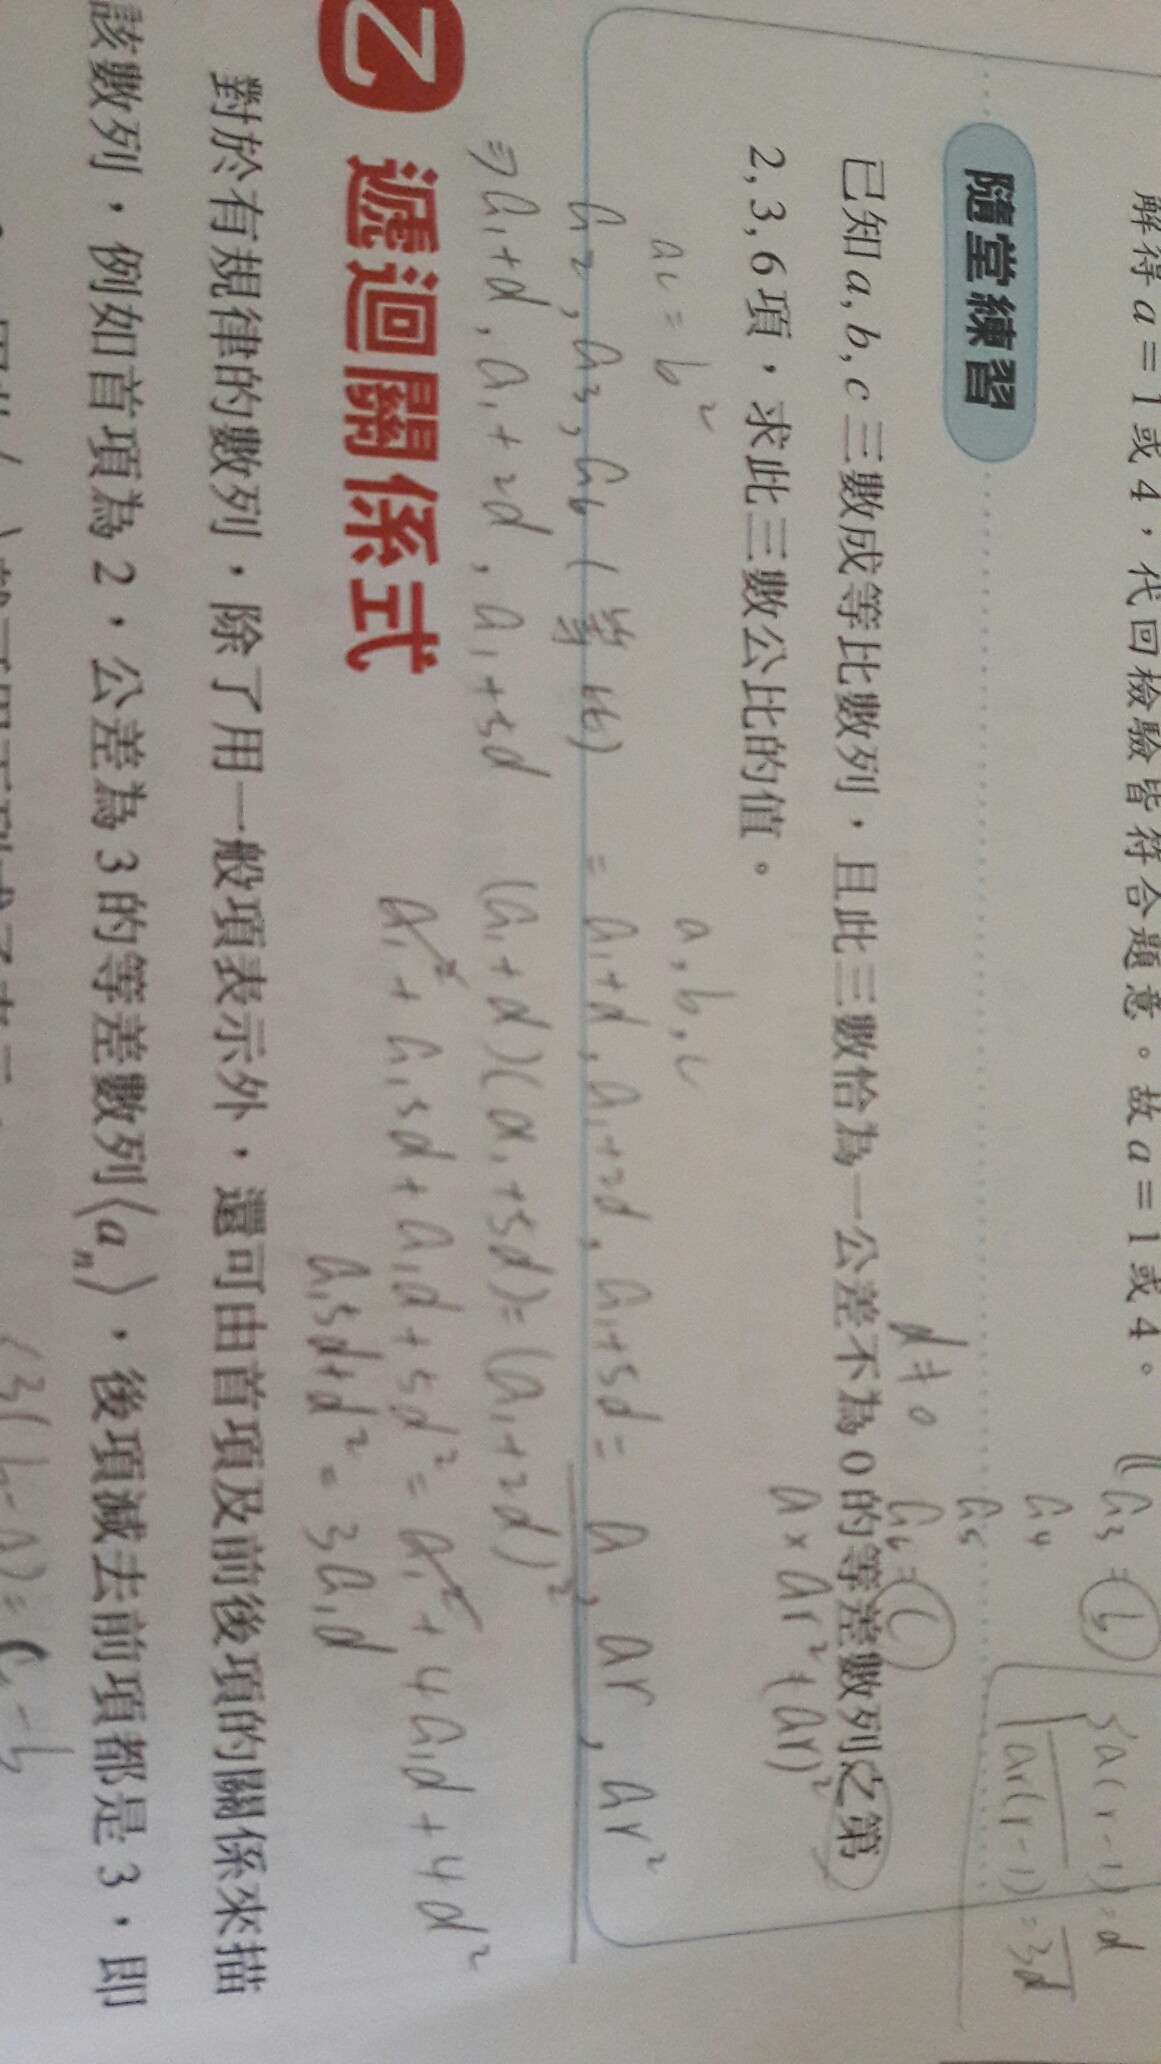 解得 a = 1 或 4，代回檢驗皆符合題意。故 a = 1 或 4。
隨堂練習
a₃ = b
a₄
a₅
a₆ = c
a(r-1) = d
ar(r-1) = 3d
d ≠ 0
已知 a, b, c 三數成等比數列，且此三數恰為一公差不為 0 的等差數列之第
2, 3, 6 項，求此三數公比的值。
a × ar² = (ar)²
ac = b²
a, b, c
a₂, a₃, a₆ (等比) = a₁+d, a₁+2d, a₁+5d = a, ar, ar²
⇒ a₁+d, a₁+2d, a₁+5d
(a₁+d)(a₁+5d) = (a₁+2d)²
a₁² + a₁5d + a₁d + 5d² = a₁² + 4a₁d + 4d²
a₁5d + d² = 3a₁d
乙 遞迴關係式
對於有規律的數列，除了用一般項表示外，還可由首項及前後項的關係來描
該數列，例如首項為 2，公差為 3 的等差數列⟨aₙ⟩，後項減去前項都是 3，即